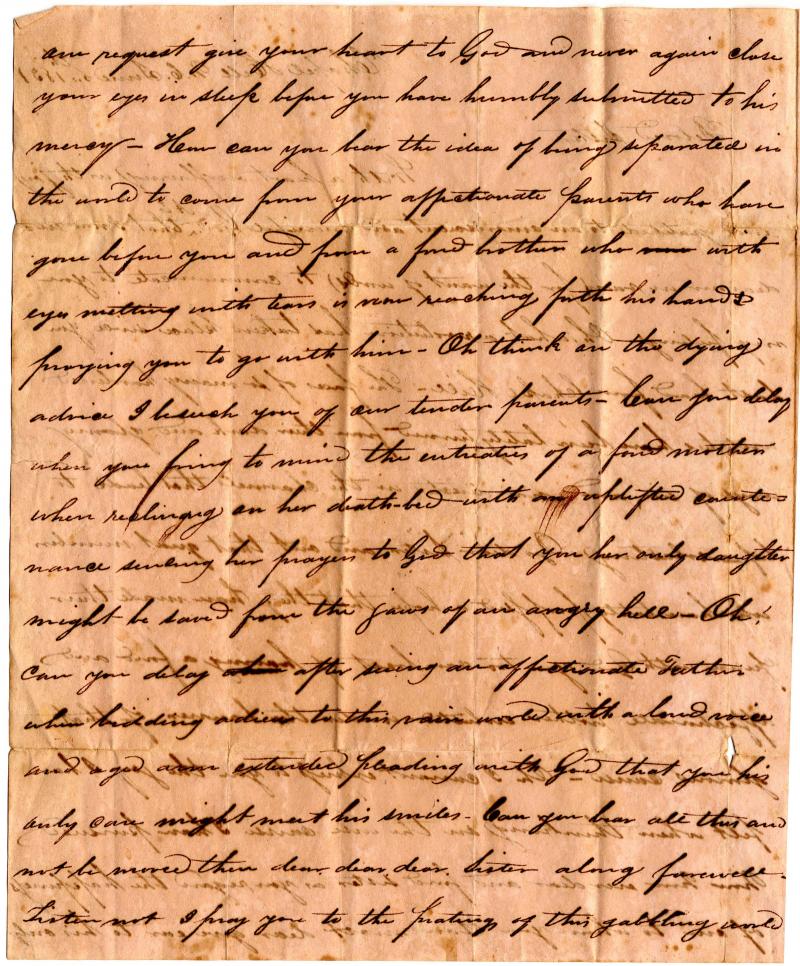 one request give your heart to God and never again close
your eyes in sleep before you have humbly submitted to his
mercy – How can you bear the idea of being separated in
the world to come from your affectionate parents who have
gone before you and from a fond brother who with
eyes melting with tears is now reaching forth his hands
praying you to go with him – Oh think on the dying
advice I beseech you of our tender parents – Can you delay
when you bring to mind the entreaties of a fond mother
when reclining on her death-bed with uplifted counte=
nance sending her prayers to God that you her only daughter
might be saved from the jaws of an angry hell – Oh!
can you delay after seeing an affectionate Father
when bidding adieu to this vain world with a loud voice
and aged arm extended pleading with God that you his
only care might meet his smiles – Can you bear all this and
not be moved then dear, dear, dear, sister along farewell –
Listen not I pray you to the pratings of this gabbling world